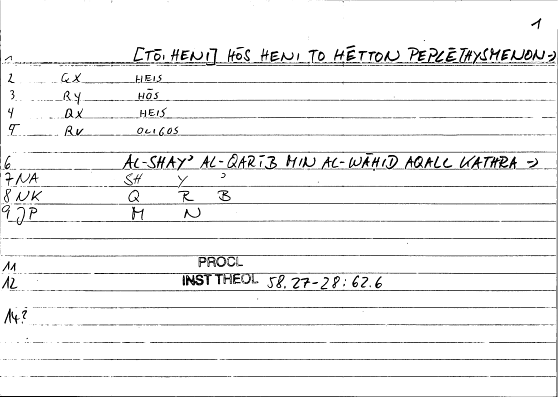 1
1 [TŌI HENI] HŌS HENI TO HĒTTON PEPLĒTHYSMENON →
2 GX HEIS
3 RY HŌS
4 QX HEIS
5 RV OLIGOS
6 AL-SHAY' AL-QARĪB MIN AL-WĀḤID AQALL KATHRA →
7 NA SH Y '
8 NK Q R B
9 JP M N
11 PROCL
12 INST THEOL 58.27-28: 62.6
14?